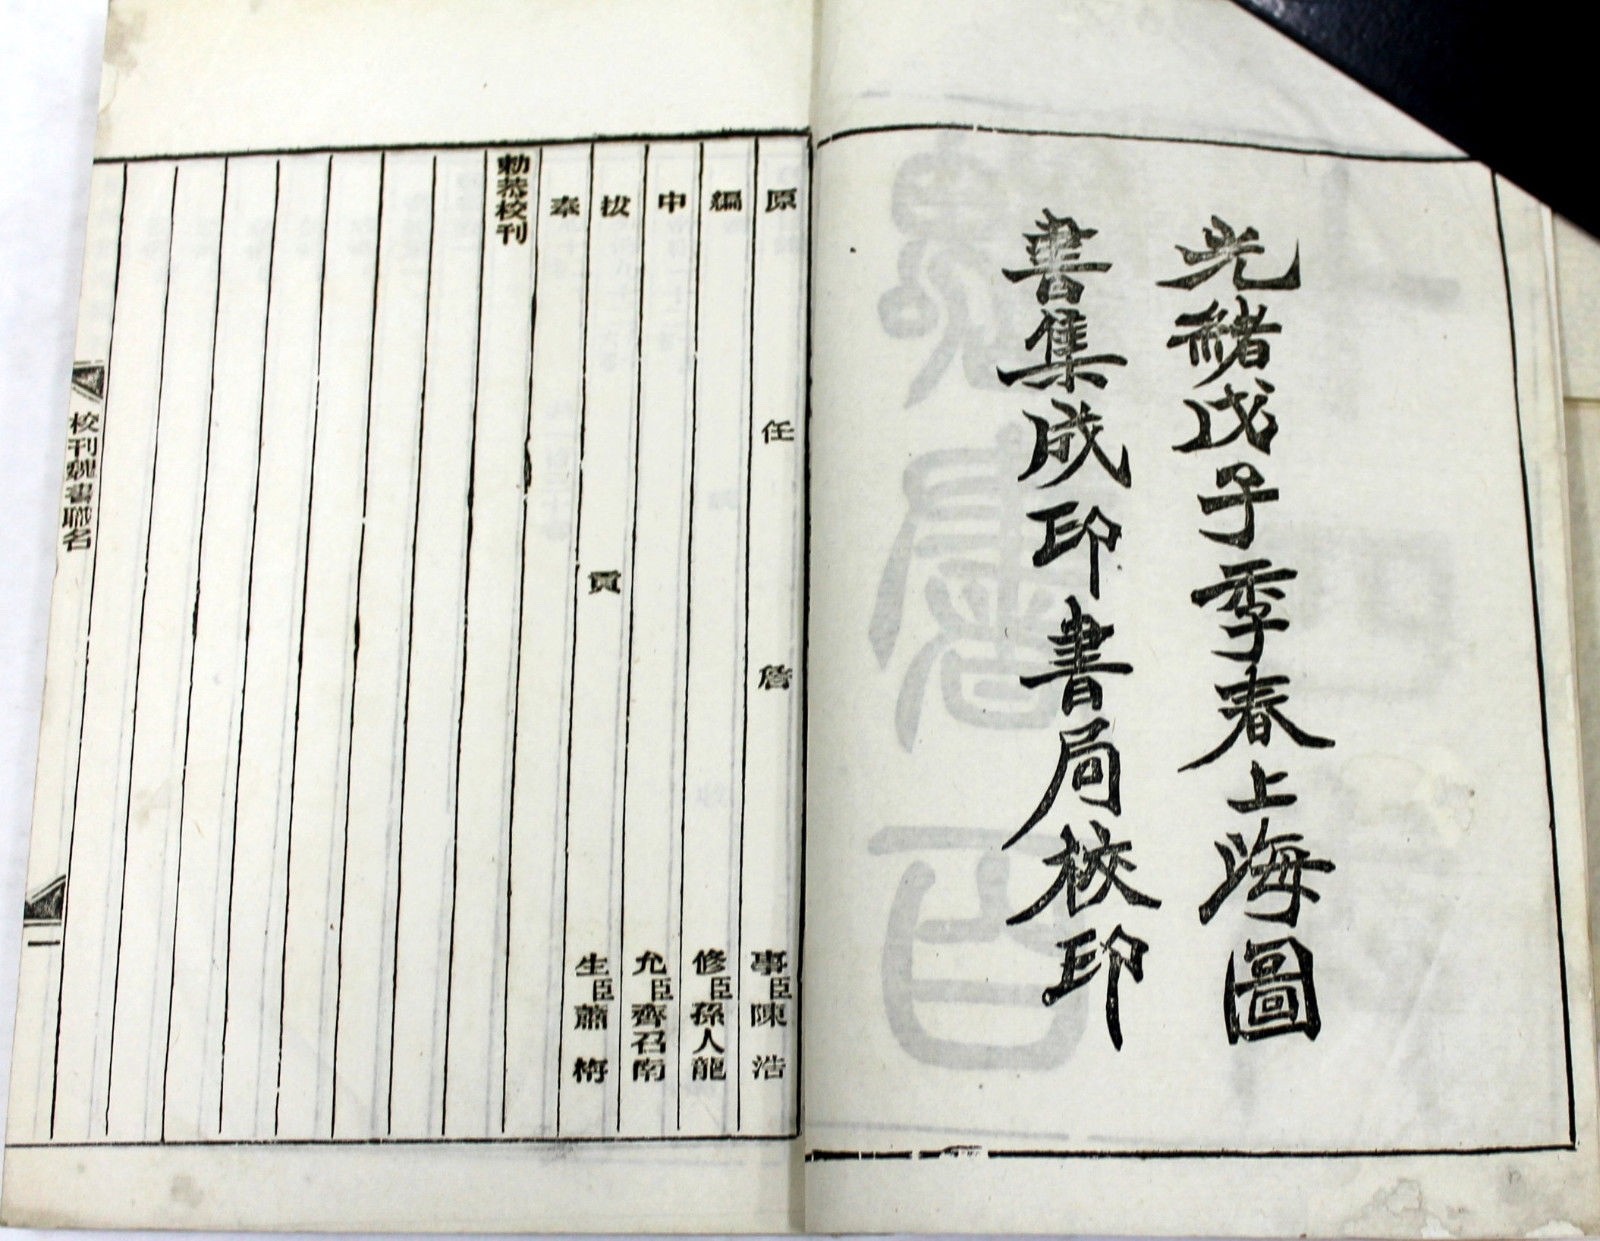 光緒戊子季春上海圖
書集成印書局校印
原任詹事臣陳浩
編修臣孫人龍
中允臣齊召南
拔貢生臣蕭
奉
勅恭校刊
校刊魏書職名
一